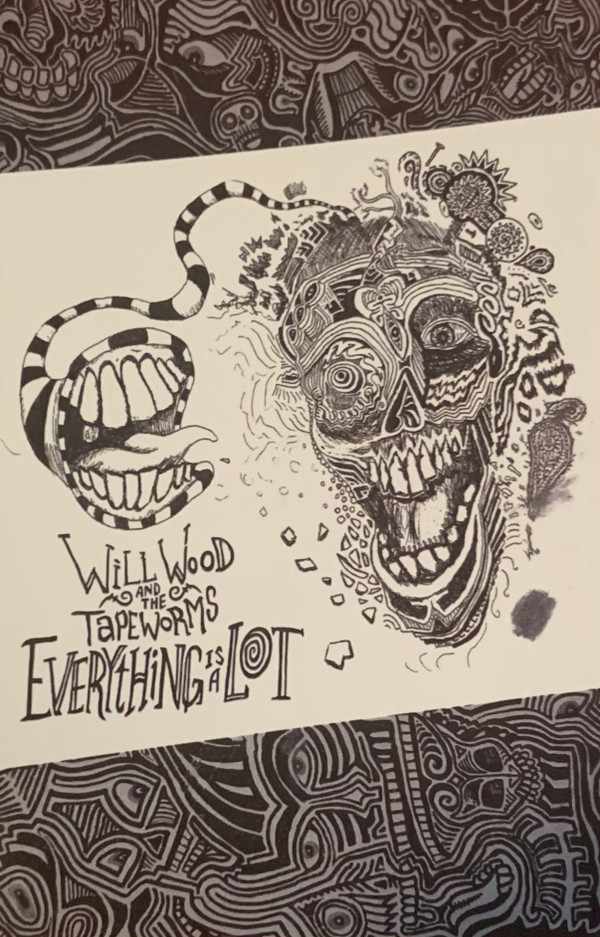 WiLL WooD
AND
THE
TAPEWORMS
EVERYtHiNG iS A LOT